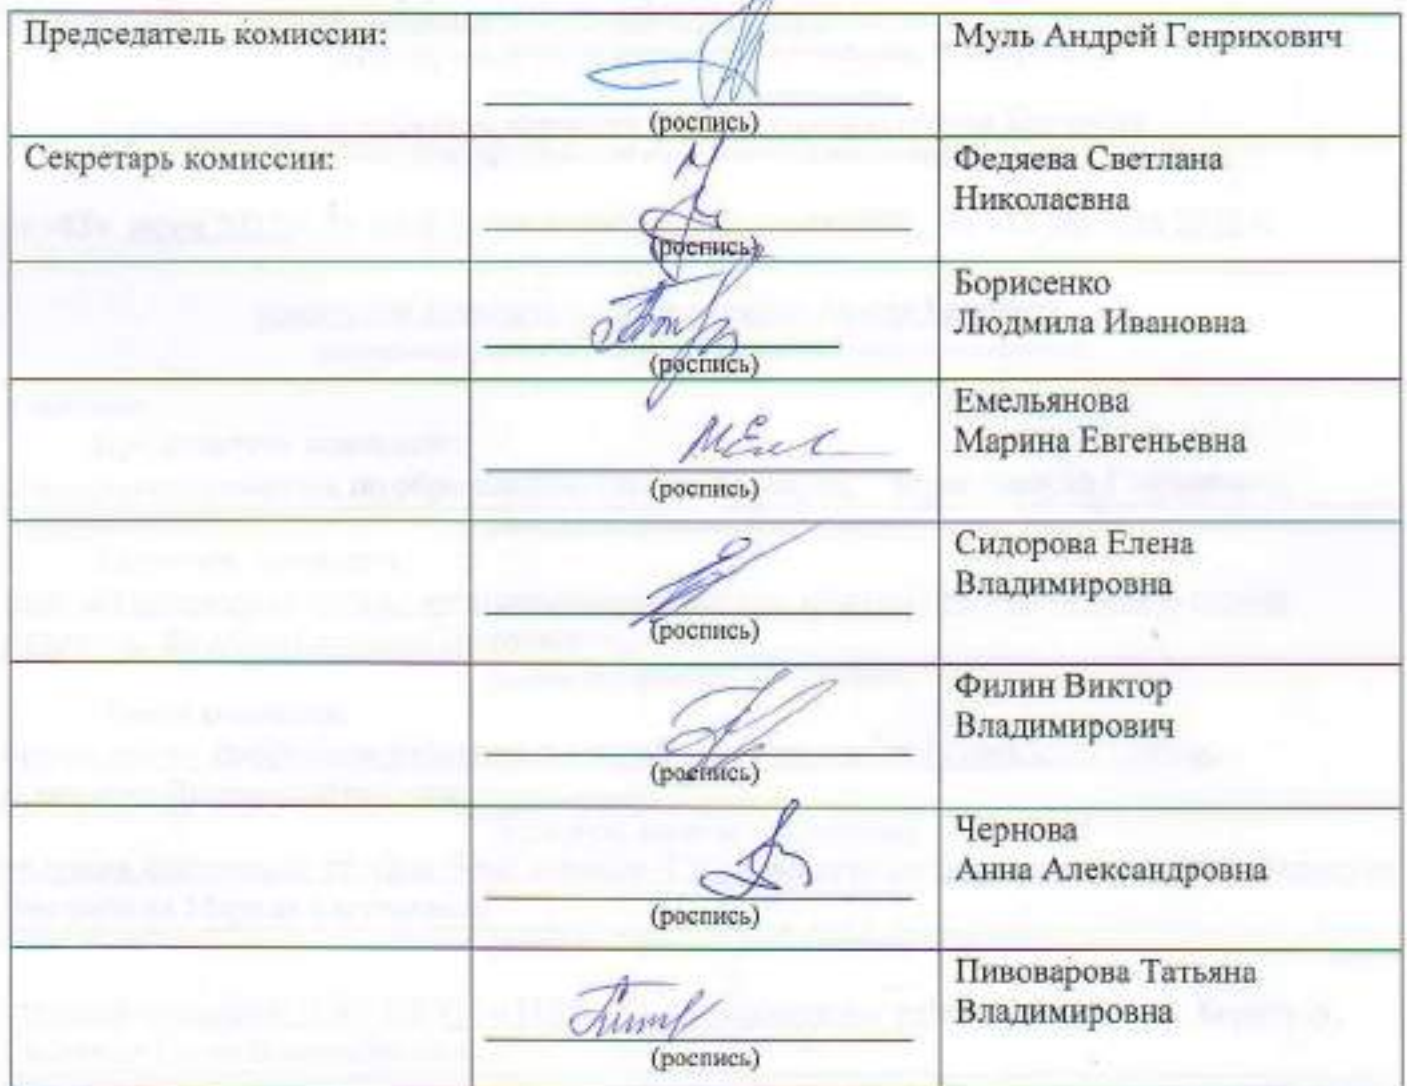 Председатель комиссии:
(роспись)
Муль Андрей Генрихович
Секретарь комиссии:
(роспись)
Федяева Светлана
Николаевна
(роспись)
Борисенко
Людмила Ивановна
(роспись)
Емельянова
Марина Евгеньевна
(роспись)
Сидорова Елена
Владимировна
(роспись)
Филин Виктор
Владимирович
(роспись)
Чернова
Анна Александровна
(роспись)
Пивоварова Татьяна
Владимировна